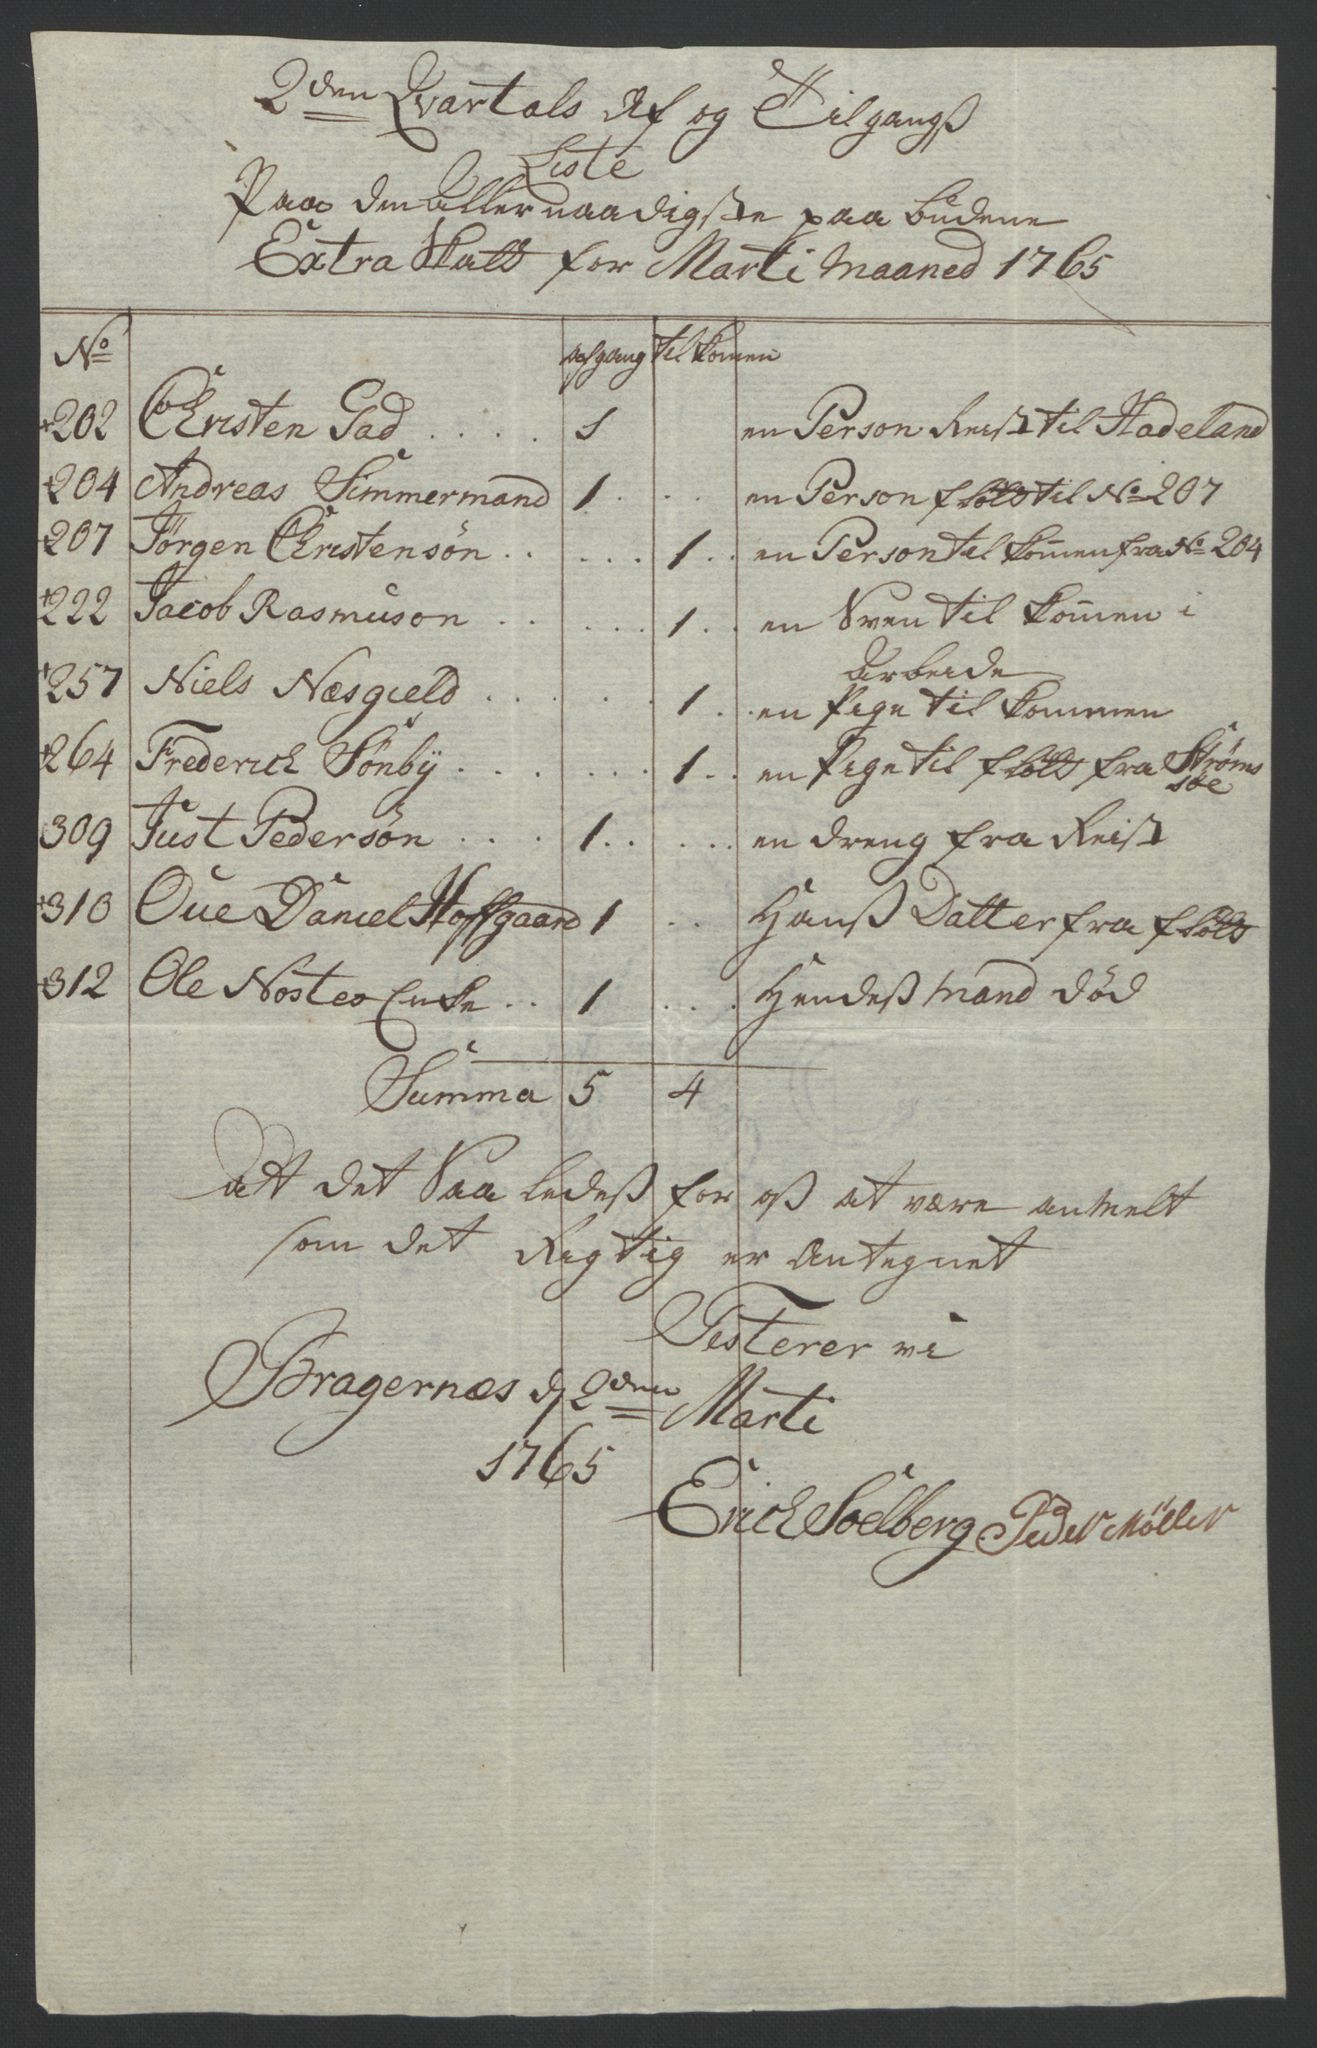 2den Qvartals Af og Tilgangß
Liste
Paa den Allernaadigste paa budene
Extra Skatt for Marti Maaned 1765
No afgang til komen
202 Christen Gad 1 en Person Reist til Hadeland
204 Andreas Simmermand 1 en Person flött til No 207
207 Jörgen Christensön 1 en Person til komen fra No 204
222 Jacob Rasmuson 1 en Sven til komen i
Arbeide
257 Niels Næsgield 1 en Pige til kommen
264 Frederich Sönbÿ 1 en Pige til flött fra Ströms
söe
309 Just Pedersön 1 en dreng fra Reist
310 Oue Daniel Hoffgaard 1 Hanß Datter fra flött
312 Ole Nostes Enke 1 Hendeß Mand död
Summa 5 4
Att det Saa ledeß for oß at være anmelt
som det Rigtig er Antegnet
Testerer vi
Bragernæs d 2den Marti
1765
Erich Soelberg Peder Möller